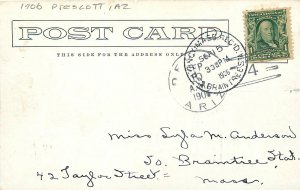 1906 PRESCOTT, AZ
POST CARD
THIS SIDE FOR THE ADDRESS ONLY.
SEP 5
3 30 PM
1906
BRAINTREE
ARIZ
4
Miss Lyla M. Anderson
So. Braintree Sta.
42 Taylor Street
Mass.